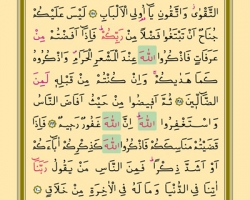 التَّقْوٰىؗ وَاتَّقُونِ يَٓا اُو۬لِي الْاَلْبَابِ ﴿١٩٧﴾ لَيْسَ عَلَيْكُمْ
جُنَاحٌ اَنْ تَبْتَغُوا فَضْلًا مِنْ رَبِّكُمْۜ فَاِذَٓا اَفَضْتُمْ مِنْ
عَرَفَاتٍ فَاذْكُرُوا اللّٰهَ عِنْدَ الْمَشْعَرِ الْحَرَامِۖ وَاذْكُرُوهُ
كَمَا هَدٰيكُمْۚ وَاِنْ كُنْتُمْ مِنْ قَبْلِه۪ لَمِنَ
الضَّٓالّ۪ينَ ﴿١٩٨﴾ ثُمَّ اَف۪يضُوا مِنْ حَيْثُ اَفَاضَ النَّاسُ
وَاسْتَغْفِرُوا اللّٰهَۜ اِنَّ اللّٰهَ غَفُورٌ رَح۪يمٌ ﴿١٩٩﴾ فَاِذَا
قَضَيْتُمْ مَنَاسِكَكُمْ فَاذْكُرُوا اللّٰهَ كَذِكْرِكُمْ اٰبَٓاءَكُمْ
اَوْ اَشَدَّ ذِكْرًاۜ فَمِنَ النَّاسِ مَنْ يَقُولُ رَبَّنَٓا
اٰتِنَا فِي الدُّنْيَا وَمَا لَهُ فِي الْاٰخِرَةِ مِنْ خَلَاقٍ ﴿٢٠٠﴾